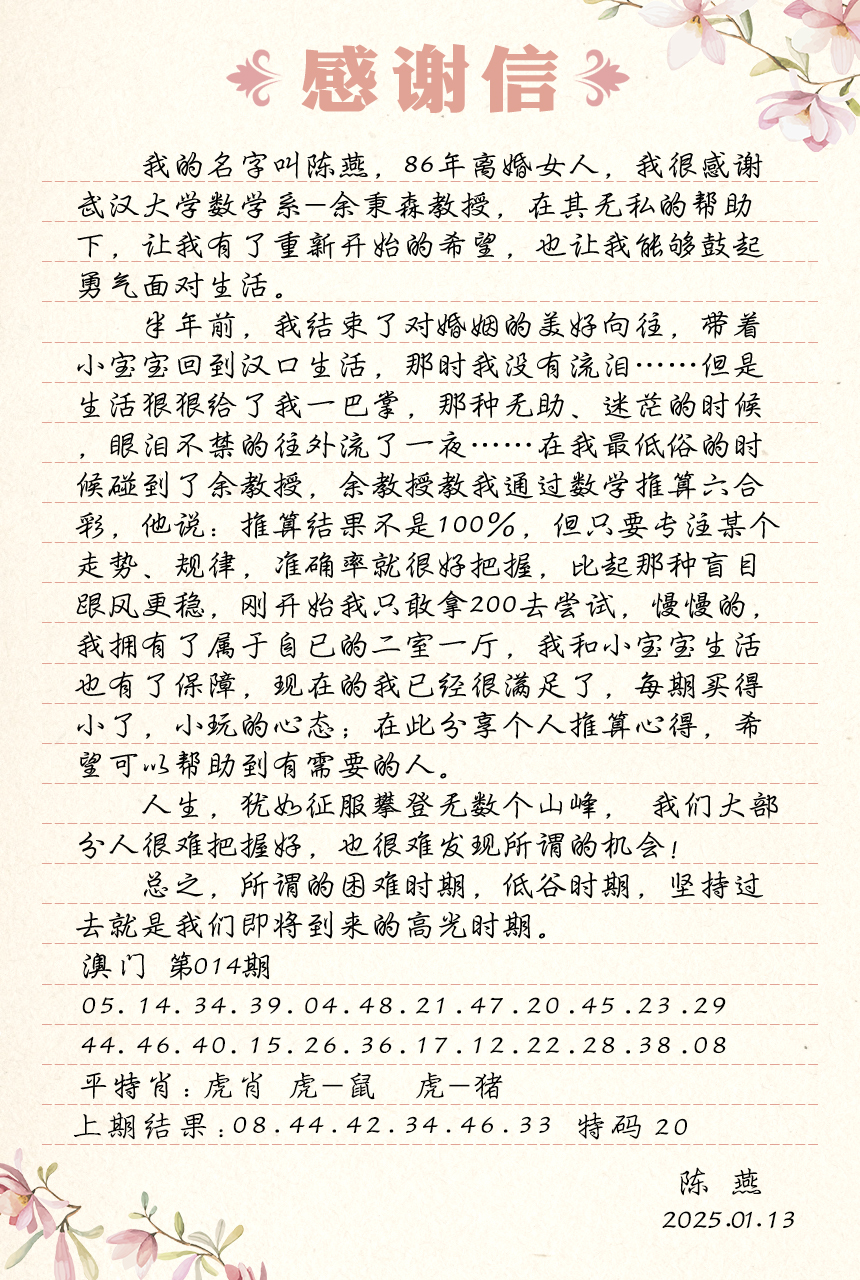 感谢信
我的名字叫陈燕，86年离婚女人，我很感谢
武汉大学数学系—余秉森教授，在其无私的帮助
下，让我有了重新开始的希望，也让我能够鼓起
勇气面对生活。
半年前，我结束了对婚姻的美好向往，带着
小宝宝回到汉口生活，那时我没有流泪……但是
生活狠狠给了我一巴掌，那种无助、迷茫的时候
，眼泪不禁的往外流了一夜……在我最低俗的时
候碰到了余教授，余教授教我通过数学推算六合
彩，他说：推算结果不是100%，但只要专注某个
走势、规律，准确率就很好把握，比起那种盲目
跟风更稳，刚开始我只敢拿200去尝试，慢慢的，
我拥有了属于自已的二室一厅，我和小宝宝生活
也有了保障，现在的我已经很满足了，每期买得
小了，小玩的心态；在此分享个人推算心得，希
望可以帮助到有需要的人。
人生，犹如征服攀登无数个山峰， 我们大部
分人很难把握好，也很难发现所谓的机会！
总之，所谓的困难时期，低谷时期，坚持过
去就是我们即将到来的高光时期。
澳门 第014期
05.14.34.39.04.48.21.47.20.45.23.29
44.46.40.15.26.36.17.12.22.28.38.08
平特肖：虎肖 虎—鼠 虎—猪
上期结果：08.44.42.34.46.33 特码 20
陈 燕
2025.01.13